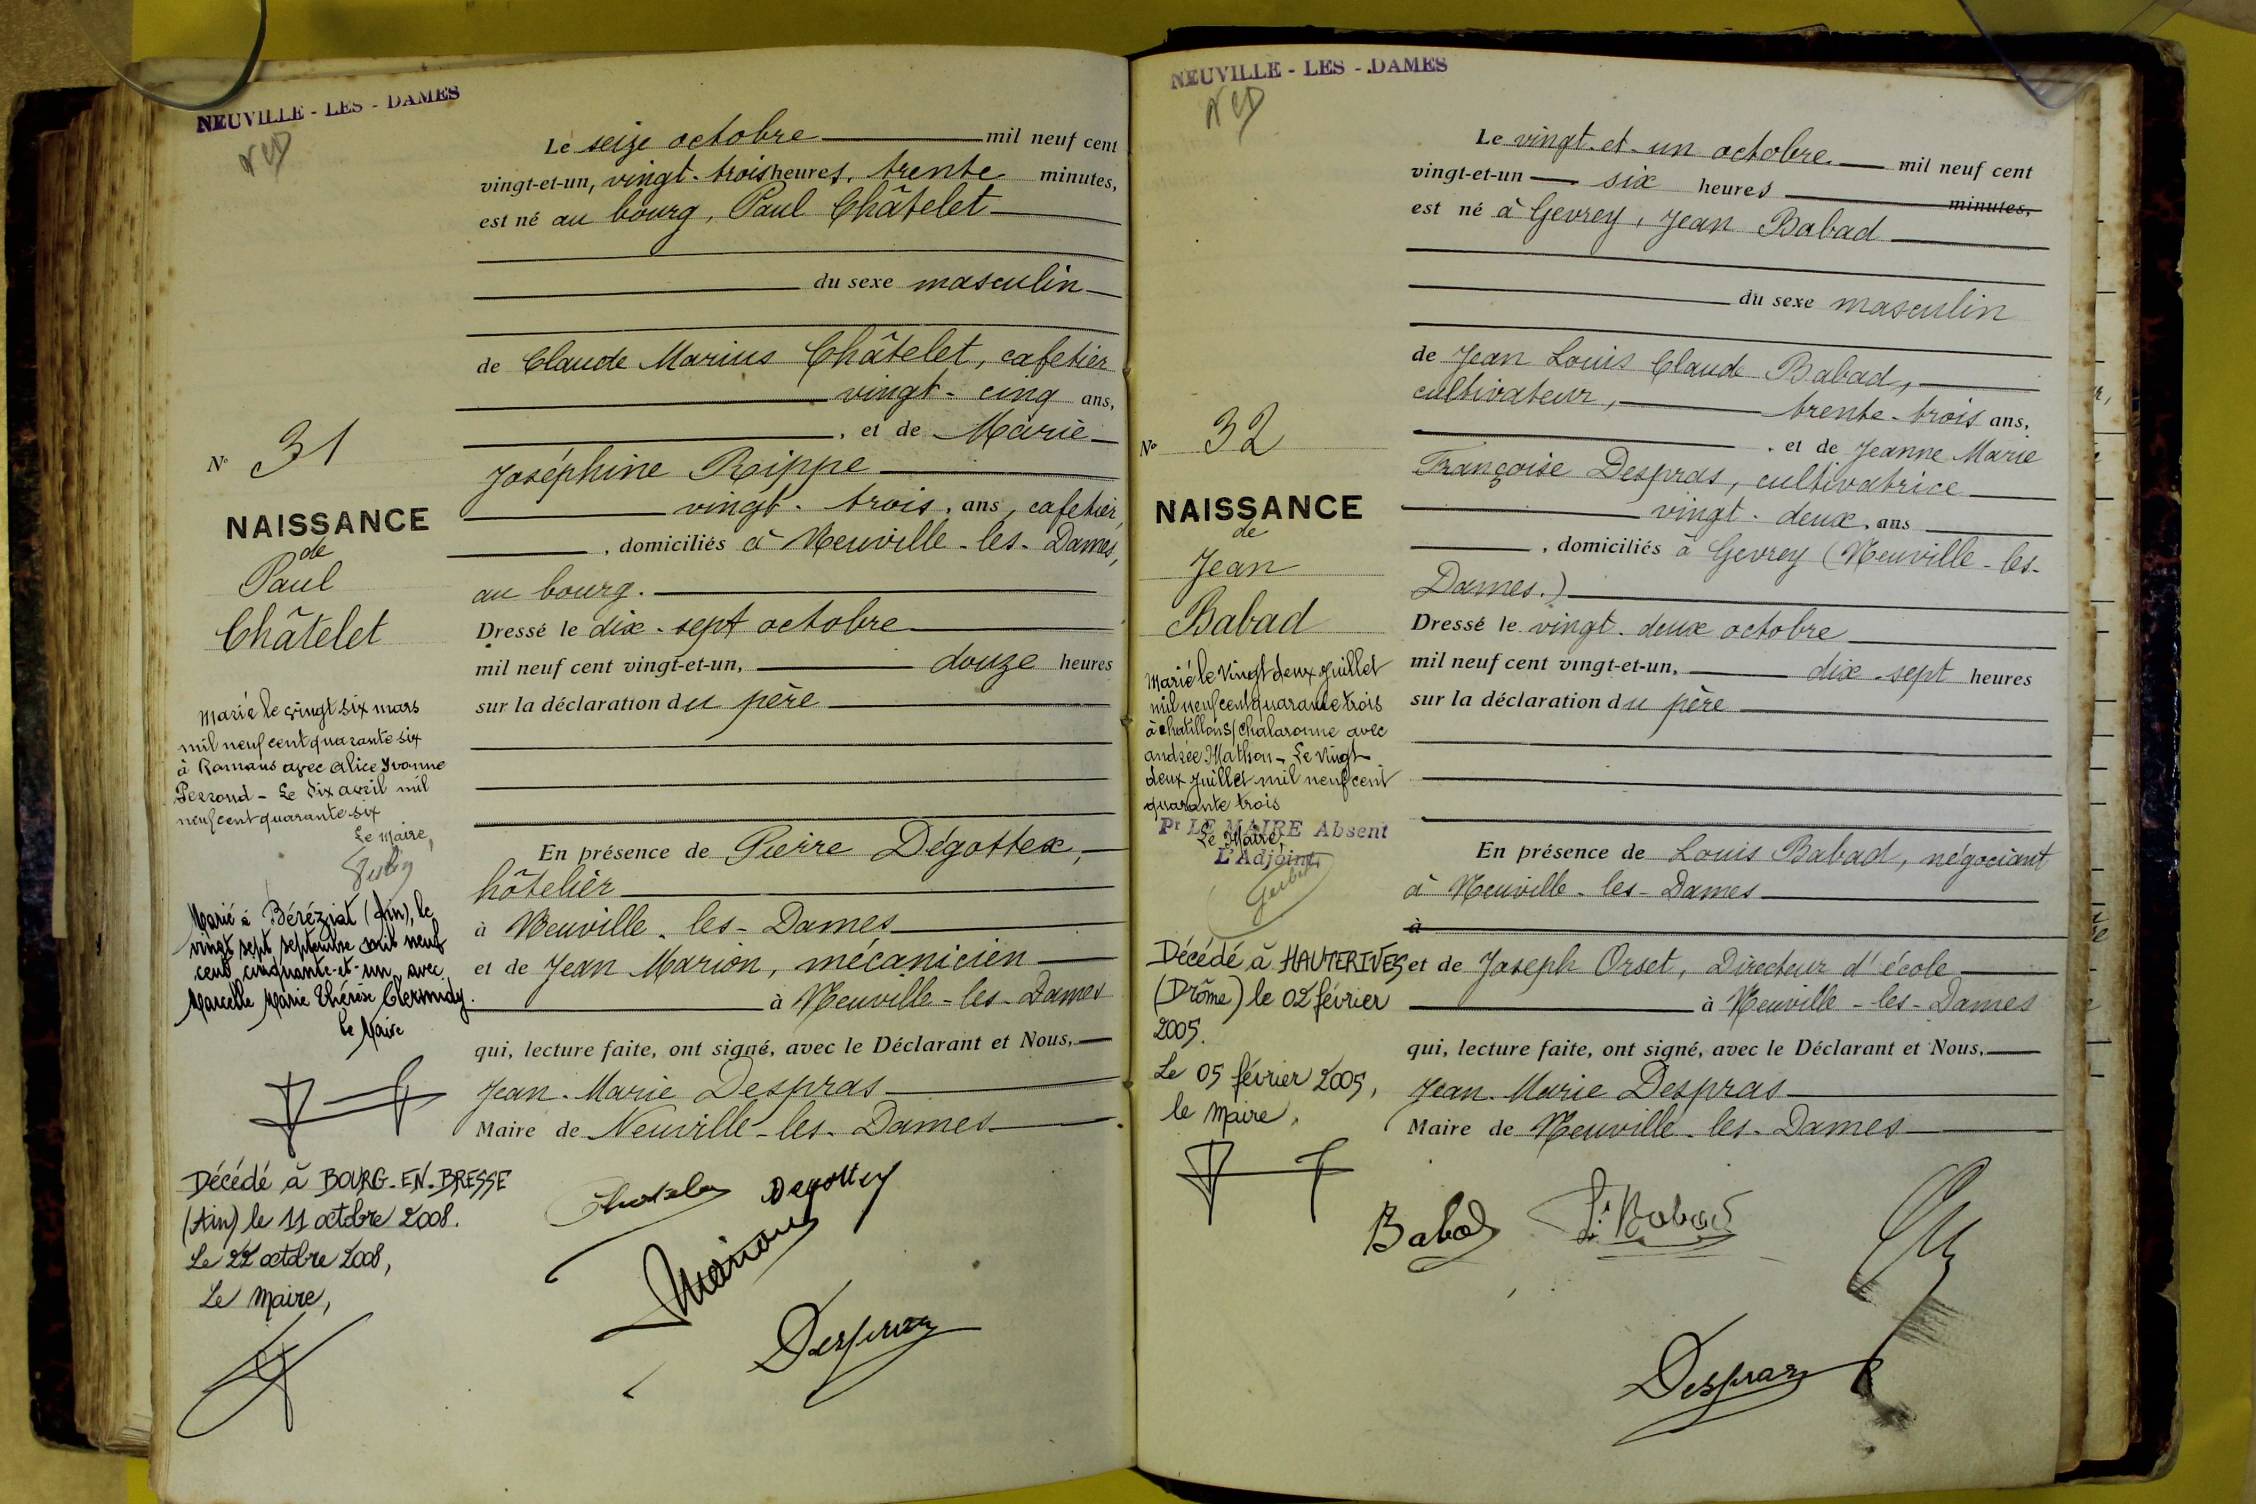 NEUVILLE - LES - DAMES
NLD
Le seize octobre mil neuf cent
vingt-et-un, vingt-trois heures, trente minutes,
est né au bourg, Paul Châtelet
du sexe masculin
de Claude Marius Châtelet, cafetier
vingt-cinq ans,
, et de Marie
Joséphine Rippe
vingt-trois, ans, cafetier,
, domiciliés à Neuville-les-Dames,
au bourg.
Dressé le dix-sept octobre
mil neuf cent vingt-et-un, douze heures
sur la déclaration du père
En présence de Pierre Dégottex,
hôtelier
à Neuville-les-Dames
et de Jean Marion, mécanicien
à Neuville-les-Dames
qui, lecture faite, ont signé, avec le Déclarant et Nous,
Jean-Marie Despras
Maire de Neuville-les-Dames
Chatelet Degottex
Marion
Despras
N° 31
NAISSANCE
de
Paul
Châtelet
Marié le vingt six mars
mil neuf cent quarante six
à Romans avec Alice Yvonne
Perroud - Le dix avril mil
neuf cent quarante-six
Le Maire,
Marié à Béréziat (Ain), le
vingt sept septembre mil neuf
cent cinquante-et-un avec
Marcelle Marie Thérèse Clermidy.
Le Maire
Décédé à BOURG-EN-BRESSE
(Ain) le 11 octobre 2008.
Le 22 octobre 2008,
Le Maire,
NEUVILLE - LES - DAMES
NLD
Le vingt-et-un octobre mil neuf cent
vingt-et-un six heures minutes,
est né à Gevrey, Jean Babad
du sexe masculin
de Jean Louis Claude Babad,
cultivateur, trente-trois ans,
, et de Jeanne Marie
Françoise Despras, cultivatrice
vingt-deux, ans
, domiciliés à Gevrey (Neuville-les-
Dames.)
Dressé le vingt-deux octobre
mil neuf cent vingt-et-un, dix-sept heures
sur la déclaration du père
En présence de Louis Babad, négociant
à Neuville-les-Dames
à
et de Joseph Orset, Directeur d'école
à Neuville-les-Dames
qui, lecture faite, ont signé, avec le Déclarant et Nous,
Jean-Marie Despras
Maire de Neuville-les-Dames
Babad Ls Babad
Despras
N° 32
NAISSANCE
de
Jean
Babad
Marié le vingt deux juillet
mil neuf cent quarante trois
à Chatillon s/ Chalaronne avec
Andrée Mathon - Le vingt
deux juillet mil neuf cent
quarante trois
Pr LE MAIRE Absent
Le Maire,
L'Adjoint,
Décédé à HAUTERIVES
(Drôme) le 02 février
2005.
Le 05 février 2005,
le Maire,